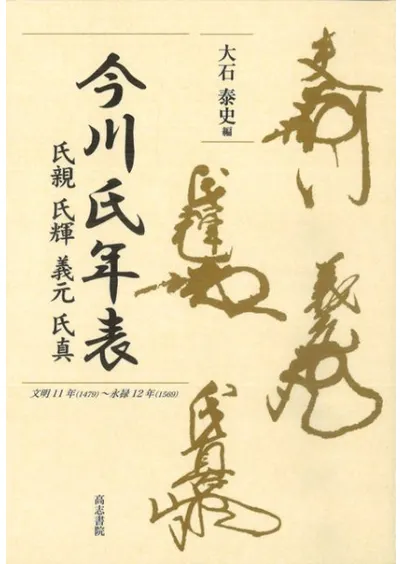 大石 泰史 編
今川氏年表
氏親 氏輝 義元 氏真
文明11年(1479)〜永禄12年(1569)
高志書院
氏輝
義元
氏真